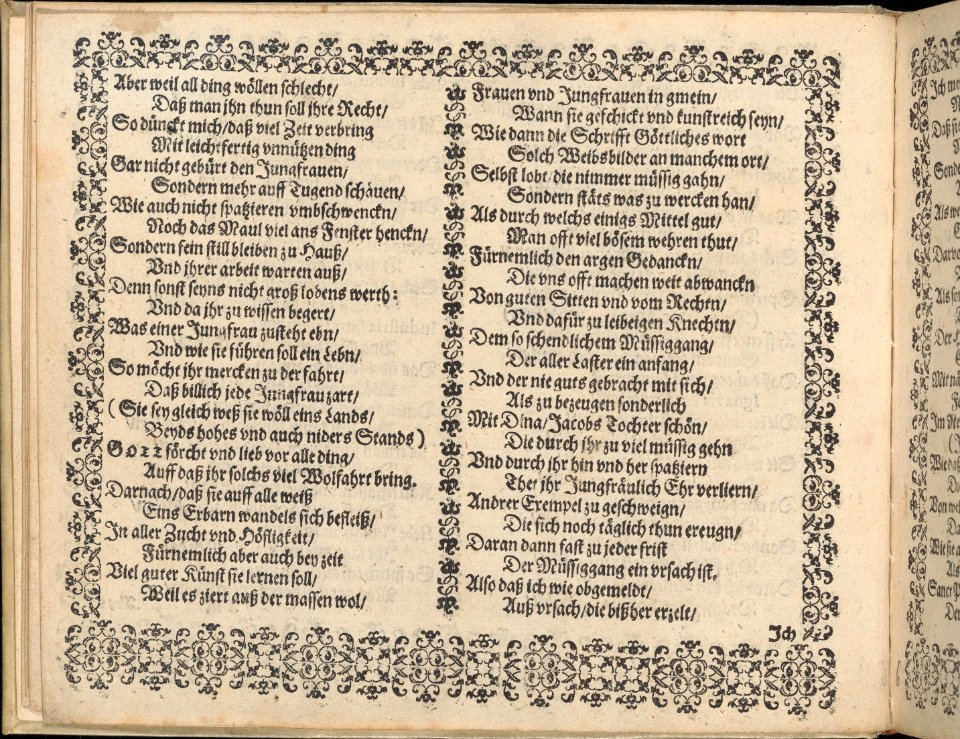 Aber weil all ding wöllen schlecht/
Daß man jhn thun soll ihre Recht/
So dünckt mich/daß viel Zeit verbring
Mit leichtfertig vnnützen ding
Gar nicht gebürt den Jungfrauen/
Sondern mehr auff Tugend schauen/
Wie auch nicht spatzieren vmbschwenckn/
Noch das Maul viel ans Fenster henckn/
Sondern fein still bleiben zu Hauß/
Vnd ihrer arbeit warten auß/
Denn sonst seyns nicht groß lobens werth:
Vnd da jhr zu wissen begert/
Was einer Jungfrau zusteht ebn/
Vnd wie sie führen soll ein Lebn/
So möcht jhr mercken zu der fahrt/
Daß billich jede Jungfrau zart/
(Sie sey gleich weß sie wöll eins Lands/
Beyds hohes vnd auch niders Stands)
GOTT förcht vnd lieb vor alle ding/
Auff daß jhr solchs viel Wolfahrt bring.
Darnach/daß sie auff alle weiß
Eins Erbarn wandels sich befleiß/
In aller Zucht vnd Höfligkeit/
Fürnemlich aber auch bey zeit
Viel guter Künst sie lernen soll/
Weil es ziert auß der massen wol/
Frauen vnd Jungfrauen in gmein/
Wann sie geschickt vnd kunstreich seyn/
Wie dann die Schrifft Göttliches wort
Solch Weibsbilder an manchem ort/
Selbst lobt/die nimmer müssig gahn/
Sondern stäts was zu wercken han/
Als durch welchs einigs Mittel gut/
Man offt viel bösem wehren thut/
Fürnemlich den argen Gedanckn/
Die vns offt machen weit abwanckn
Von guten Sitten vnd vom Rechtn/
Vnd dafür zu leibeigen Knechtn/
Dem so schendlichem Müssiggang/
Der aller Laster ein anfang/
Vnd der nie guts gebracht mit sich/
Als zu bezeugen sonderlich
Mit Dina/Jacobs Tochter schön/
Die durch jhr zu viel müssig gehn
Vnd durch ihr hin vnd her spatziern
Thet jhr Jungfräulich Ehr verliern/
Andrer Exempel zu geschweign/
Die sich noch täglich thun ereugn/
Daran dann fast zu jeder frist
Der Müssiggang ein vrsach ist,
Also daß ich wie obgemelde/
Auß vrsach/die bißher erzelt/
Ich